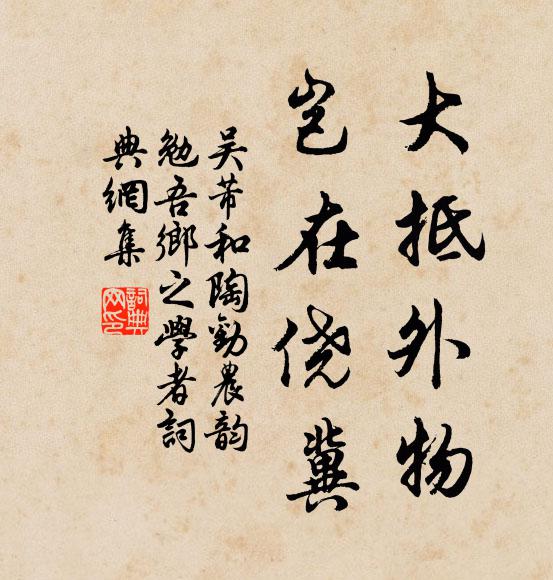 大抵外物
岂在侥冀
吴芾和陶勸農韵
勉吾鄉之學者詞
典網集
詞典
网印